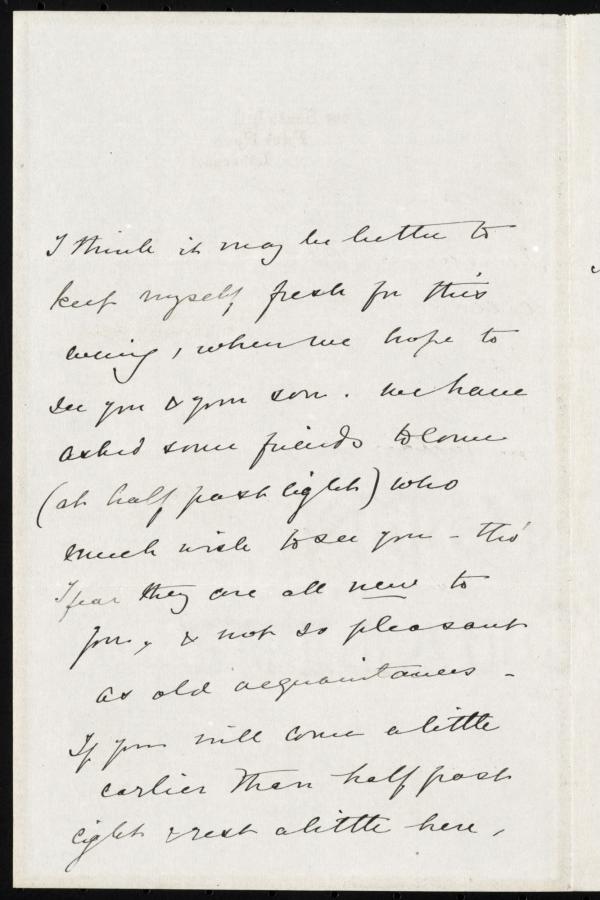 I think it may be better to
keep myself fresh for this
evening, when we hope to
see you & your son. We have
asked some friends to come
(at half past eight) who
much wish to see you - tho'
I fear they are all new to
you, & not so pleasant
as old acquaintances -
If you will come a little
earlier than half past
eight & rest a little here,